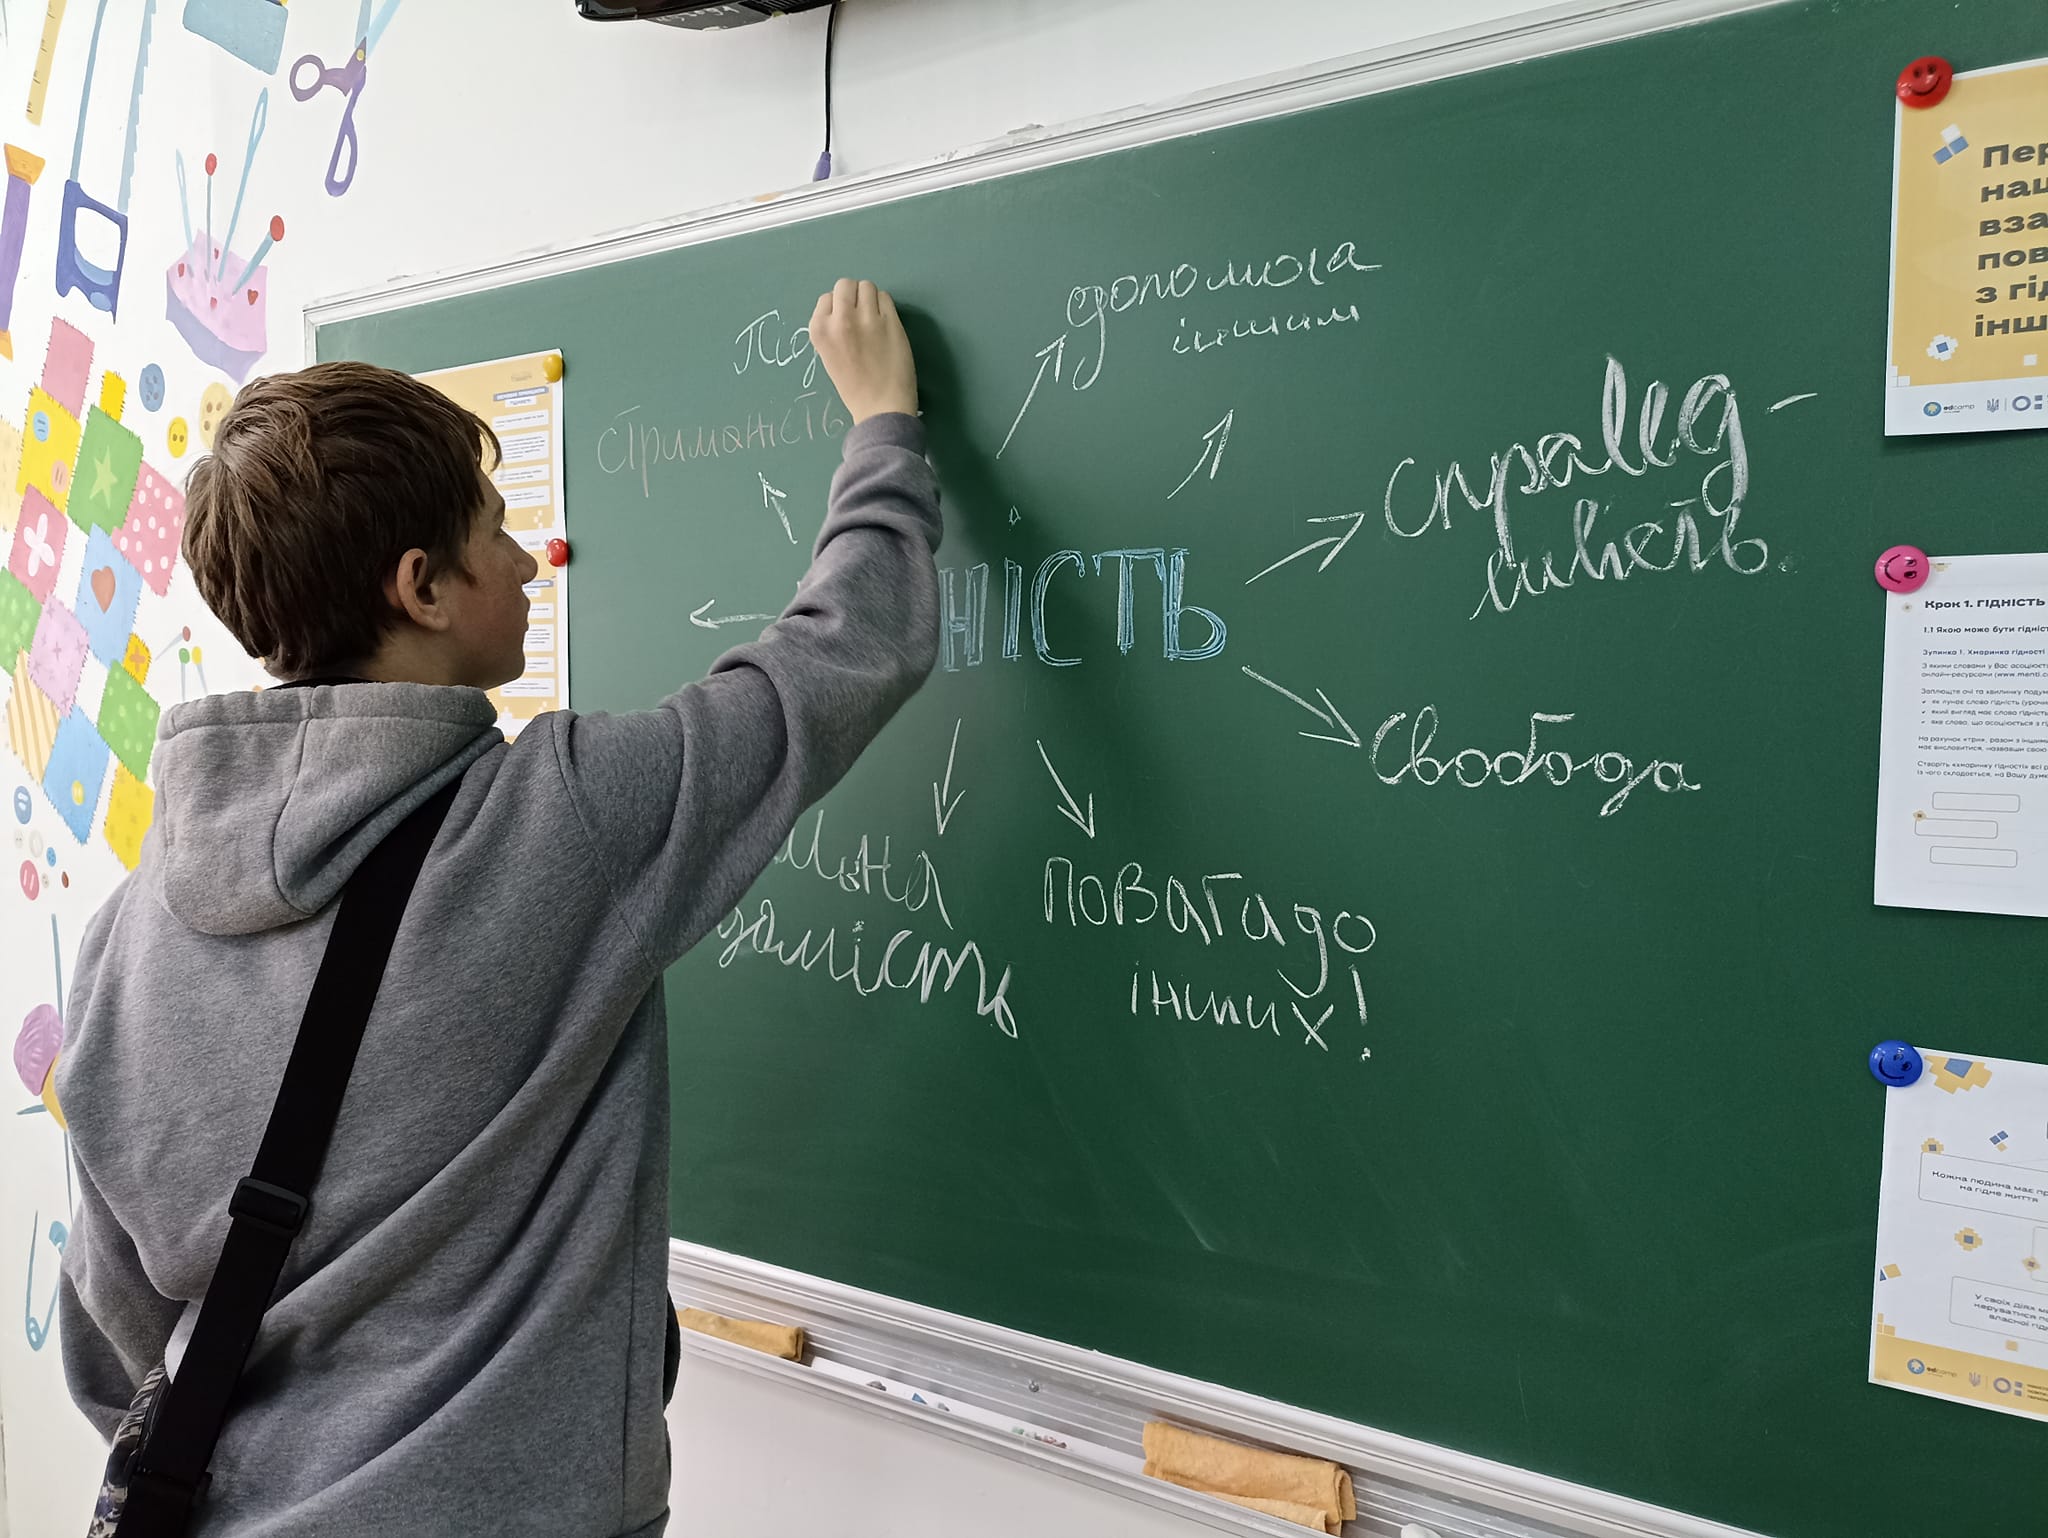 Під
допомога
іншим
стриманість
справед-
ливість.
НІСТЬ
свобода
льна
домість
повага до
інших!
Пер
наш
вза
пов
з гід
інш
edcamp
Крок 1. ГІДНІСТЬ
1.1 Якою може бути гідніст
Зупинка 1. Хмаринка гідності
З якими словами у Вас асоціюєт
онлайн-ресурсами (www.menti.c
Заплющте очі та хвилинку подум
як лунає слово гідність (урочи
який вигляд має слово гідність
яке слово, що асоціюється з гі
На рахунок «три», разом з іншими
має висловитися, назвавши свою
Створіть «хмаринку гідності» всі р
із чого складається, на Вашу думк
Кожна людина має пр
на гідне життя
У своїх діях м
керуватися п
власної гід
edcamp